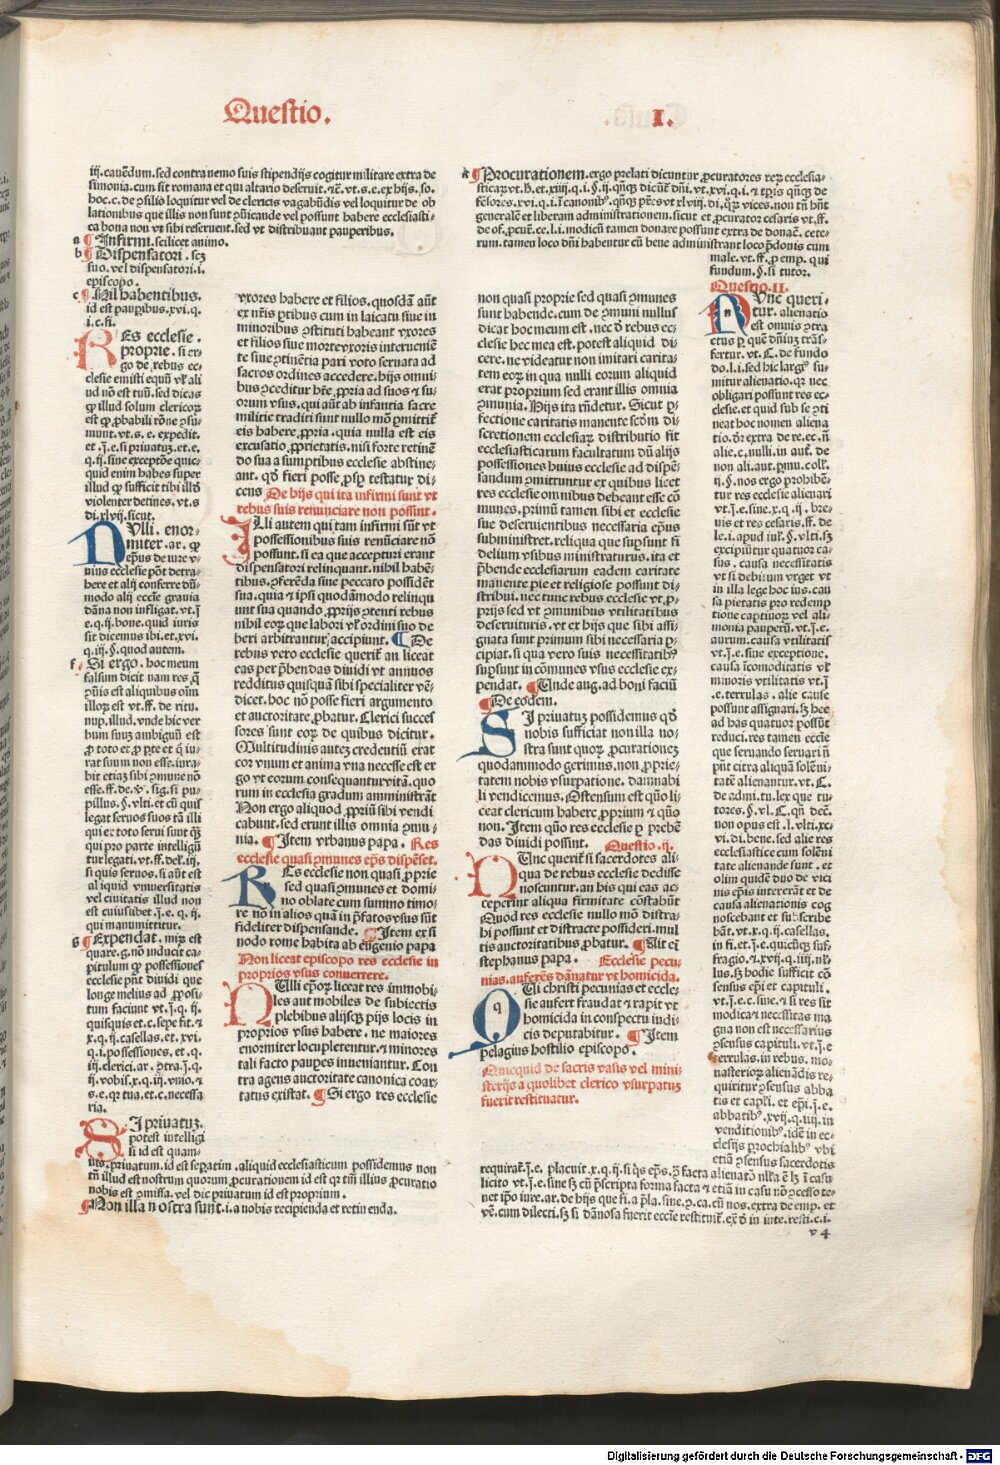 Questio.
I.
iij. cauendum. sed contra nemo suis stipendijs cogitur militare extra de
simonia. cum sit romana et qui altario deseruit. ⁊c. vt. s. e. ex hijs. so.
hoc. c. de ꝯsilio loquitur vel de clericis vagabūdis vel loquitur de ob
lationibus que illis non sunt ꝯūicande vel possunt habere ecclesiasti-
ca bona non vt sibi reseruent. sed vt distribuant pauperibus.
a ¶ Infirmi. scilicet animo.
b ¶ Dispensatori. scʒ
suo. vel dispensatori. i.
episcopo.
c ¶ Nil habentibus.
id est paupibus. xvi. q.
i. c. fi.
REs ecclesie.
proprie. si er-
go de rebus ec-
clesie emisti equū vł ali
ud nō est tuū. sed dicas
ꝙ illud solum clericorʒ
est ꝙ ꝓbabili rōne ꝯsu-
munt. vt. s. e. expedit.
et. j. e. si priuatʒ. et. e.
q. ij. sine exceptōe quic-
quid enim habes super
illud ꝙ sufficit tibi illđ
violenter detines. vt. s
di. xlvij. sicut.
NVlli. enor-
miter. ar. ꝙ
epūs de iure v-
nius ecclesie pōt detra-
here et alij conferre dū-
modo alij eccīe grauia
dāna non infligat. vt. j
e. q. ij. bone. quid iuris
sit dicemus ibi. et. xvi.
q. iij. §. quod autem.
f ¶ Si ergo. hoc meum
falsum dicit nam res ꝙ
illorʒ est vt. ff. de ritu.
nup. illud. vnde hic ver
bum sumʒ ambiguū est
esse. ff. de. v̄. sig. si pu-
pillus. §. vlti. et cū quis
legat seruos suos tā illi
qui ex toto serui sunt qʒ
qui pro parte intelligū
tur legati. vt. ff. de leḡ. iij.
si quis seruos. si aūt est
aliquid vniuersitatis
vel ciuitatis illud non
est cuiuslibet. j. e. q. ij.
qui manumittitur.
g ¶ Expendat. mirʒ est
quare. g. nō inducit ca-
pitulum ꝙ possessiones
ecclesie pn̄t diuidi que
longe melius ad ꝓposi-
tum faciunt vt. j. q. ij.
quisquis et. c. sepe fit. ⁊
x. q. ij. casellas. et. xvi
q. i. possessiones. et. q.
iij. clerici. ar. ꝯtra. j. q.
ij. vobis. x. q. iij. vnio. ⁊
s. e. qr tua. et. c. necessa
ria.
SI priuatʒ.
potest intelligi
si id est quam-
uis. priuatum. id est sepatim. aliquid ecclesiasticum possidemus non
tn̄ illud est nostrum quorum ꝓcurationem id est qr tm̄ illius ꝓcuratio
nobis est ꝯmissa. vel dic priuatum id est proprium.
¶ Non illa nostra sunt. i. a nobis recipienda et retinenda.
vxores habere et filios. quosdā aūt
ex nr̄is ꝑtribus cum in laicatu siue in
minoribus ꝯstituti habeant vxores
et filios siue morte vxoris interueniē
te siue ꝯtinētia pari voto seruata ad
sacros ordines accedere. hijs omni-
bus ꝯceditur hr̄e ꝓpria ad suos ⁊ su-
orum vsus. qui aūt ab infantia sacre
militie traditi sunt nullo mō ꝑmittīt
eis habere ꝓpria. quia nulla est eis
excusatio ꝓprietatis. nisi forte retinē
do sua a sumptibus ecclesie abstine-
ant. qđ fieri posse ꝓsp testatur di-
cens De hijs qui ita infirmi sunt vt
rebus suis renunciare non possint.
ILli autem qui tam infirmi sūt vt
possessionibus suis renūciare nō
possunt. si ea que accepturi erant
dispensatori relinquant. nihil habē-
tibus ꝯferēda sine peccato possidēt
sua. quia ⁊ ipsi quodāmodo relinqu
unt sua quando ꝓprijs ꝯtenti rebus
nihil eorʒ que labori vł ordini suo de
beri arbitrantur accipiunt. ¶ De
rebus vero ecclesie querit̄ an liceat
eas per p̄bendas diuidi vt annuos
redditus quisquā sibi specialiter vē-
dicet. hoc nō posse fieri argumento
et auctoritate ꝓbatur. Clerici succes
sores sunt eorʒ de quibus dicitur.
Multitudinis autē credentiū erat
cor vnum et anima vna necesse est er
go vt eorum consequantur vitā. quo
rum in ecclesia gradum amministrāt
Non ergo aliquod ꝓpriū sibi vendi
cabunt. sed erunt illis omnia ꝯmu-
nia. ¶ Item vrbanus papa. Res
ecclesie quasi ꝯmunes epūs dispēset.
REs ecclesie non quasi ꝓprie
sed quasi ꝯmunes et domi-
no oblate cum summo timo-
re nō in alios quā in p̄fatos vsus sūt
fideliter dispensande. ¶ Item ex si
nodo rome habita ab eugenio papa
Non liceat episcopo res ecclesie in
proprios vsus conuertere.
NVlli ep̄orʒ liceat res immobi-
les aut mobiles de subiectis
plebibus alijsqʒ pijs locis in
proprios vsus habere. ne maiores
enormiter locupletentur. ⁊ minores
tali facto paupes inueniantur. Con
tra agens auctoritate canonica coar-
tatus existat. ¶ Si ergo res ecclesie
a ¶ Procurationem. ergo prelati dicuntur ꝓcuratores rerʒ ecclesia-
generalē et liberam administrationem. sicut et ꝓcurator cesaris vt. ff.
de of. ꝓcu. ce. l. i. modicū tamen donare possunt extra de donat. cete-
rum. tamen loco dn̄i habentur cū bene administrant loco p̄donis cum
male. vt. ff. ꝓ emp. qui
fundum. §. si tutor.
non quasi proprie sed quasi ꝯmunes
sunt habende. cum de ꝯmuni nullus
dicat hoc meum est. nec đ rebus ec-
clesie hec mea est. potest aliquid di-
cere. ne videatur non imitari carita-
tem eorʒ in qua nulli eorum aliquid
erat proprium sed erant illis omnia
ꝯmunia. Hijs ita rn̄detur. Sicut ꝑ-
fectione caritatis manente scd̄m di-
scretionem ecclesiarʒ distributio fit
ecclesiasticarum facultatum dū alijs
possessiones huius ecclesie ad dispē-
sandum ꝯmittuntur ex quibus licet
res ecclesie omnibus debeant esse cō
munes. primū tamen sibi et ecclesie
sue deseruientibus necessaria epūs
subministret. reliqua que supsunt fi
delium vsibus ministraturus. ita et
p̄bende ecclesiarum eadem caritate
manente pie et religiose possunt di-
stribui. nec tunc rebus ecclesie vt ꝓ-
prijs sed vt ꝯmunibus vtilitatibus
deseruituris. vt ex hijs que sibi assi-
gnata sunt primum sibi necessaria p-
cipiat. si qua vero suis necessitatibʒ
supsunt in cōmunes vsus ecclesie ex-
pendat. ¶ Unde aug. ad boni faciū
¶ De eodem.
SI priuatʒ possidemus qđ
nobis sufficiat non illa no-
stra sunt quorʒ ꝓcurationeʒ
quodammodo gerimus. non ꝓprie-
tatem nobis vsurpatione. damnabi
li vendicemus. Ostensum est quō li-
ceat clericum habere ꝓprium ⁊ quō
non. Item quō res ecclesie p prebē
das diuidi possint. Questio. ij.
NUnc querit̄ si sacerdotes ali-
qua de rebus ecclesie dedisse
noscuntur. an his qui eas ac-
ceperint aliqua firmitate cōstabūt
Quod res ecclesie nullo mō distra-
hi possunt et distracte possideri. mul
tis auctoritatibus ꝓbatur. ¶ Ait ei
stephanus papa. Ecclesie pecu-
nias. auferēs dānatur vt homicida.
QUi christi pecunias et eccle-
sie aufert fraudat ⁊ rapit vt
homicida in conspectu iudi-
cis deputabitur. ¶ Item
pelagius hostilio episcopo.
Quicquid de sacris vasis vel mini
sterijs a quolibet clerico vsurpatuʒ
fuerit restituatur.
Questio. II.
NVnc queri-
tur. alienatio
est omnis ꝯtra
ctus p quē dn̄iuʒ trās-
fertur. vt. C. de fundo
do. l. i. sed hic largiʒ su-
mitur alienatio. qr nec
obligari possunt res ec-
clesie. et quid sub se ꝯti
neat hoc nomen aliena
tio. dr̄ extra de re. ec. n̄
alie. c. nulli. in aut̄. de
non ali. aut. ꝑmu. coll.
ij. §. nos ergo prohibē-
tur res ecclesie alienari
vt. j. e. sine. x. q. ij. bre-
uis et res cesaris. ff. de
le. i. apud iul. §. vlti. sʒ
excipiūtur quatuor ca-
sus. causa necessitatis
vt si debitum vrget vt
in illa lege hoc ius. cau
sa pietatis pro redemp
tione captiuorʒ vel ali-
monia pauperū. vt. j. e.
aurum. causa vtilitatis
vt. j. e. sine exceptione.
causa īcomoditatis vł
minoris vtilitatis vt. j
e. terrulas. alie cause
possunt assignari. sʒ hee
ad has quatuor possūt
reduci. res tamen eccīe
que seruando seruari n̄
pn̄t citra aliquā solēni-
tatē alienantur. vt. C.
de admi. tu. lex que tu-
tores. §. vl. C. qn̄ decē.
non opus est. l. vlti. xx-
vi. di. bene. sed alie res
ecclesiastice cum solēni
tate alienande sunt. et
olim quidē duo de vici
nis epīs intererāt et de
causa alienationis cog
noscebant et subscribe
bāt. vt. x. q. ij. casellas.
in fi. et. j. e. quicūqʒ suf-
fragio. ⁊. xvij. q. iiij. nł-
lus. sʒ hodie sufficit cō
sensus epīi et capituli.
vt. j. e. c. sine. ⁊ si res sit
modica ⁊ necessitas ma
gna non est necessarius
ꝯsensus capituli. vt. j. e
terrulas. in rebus. mo-
nasteriorʒ alienādis re-
quiritur ꝯsensus abba
tis et capl̄i. et epīi. j. e.
abbatibʒ. xvij. q. iiij. in
venditionibʒ. idē in ec-
clesijs ꝑrochialibʒ vbi
etiā ꝯsensus sacerdotis
requirat̄. j. e. placuit. x. q. ij. si q̄s epūs. q̄ facta alienatō nł̄a ē lʒ ī casu
licito vt. j. e. sine sʒ cū p̄scripta forma facta ⁊ etiā in casu nō ꝯcesso te-
net ip̄o iure. ar. de hijs que fi. a p̄la. sine. ꝯ. ca. cū nos. extra de emp. et
vē. cum dilecti. sʒ si dānosa fuerit eccīe restituit̄. ex̄ đ in inte. resti. c. i.
v 4
Digitalisierung gefördert durch die Deutsche Forschungsgemeinschaft - DFG